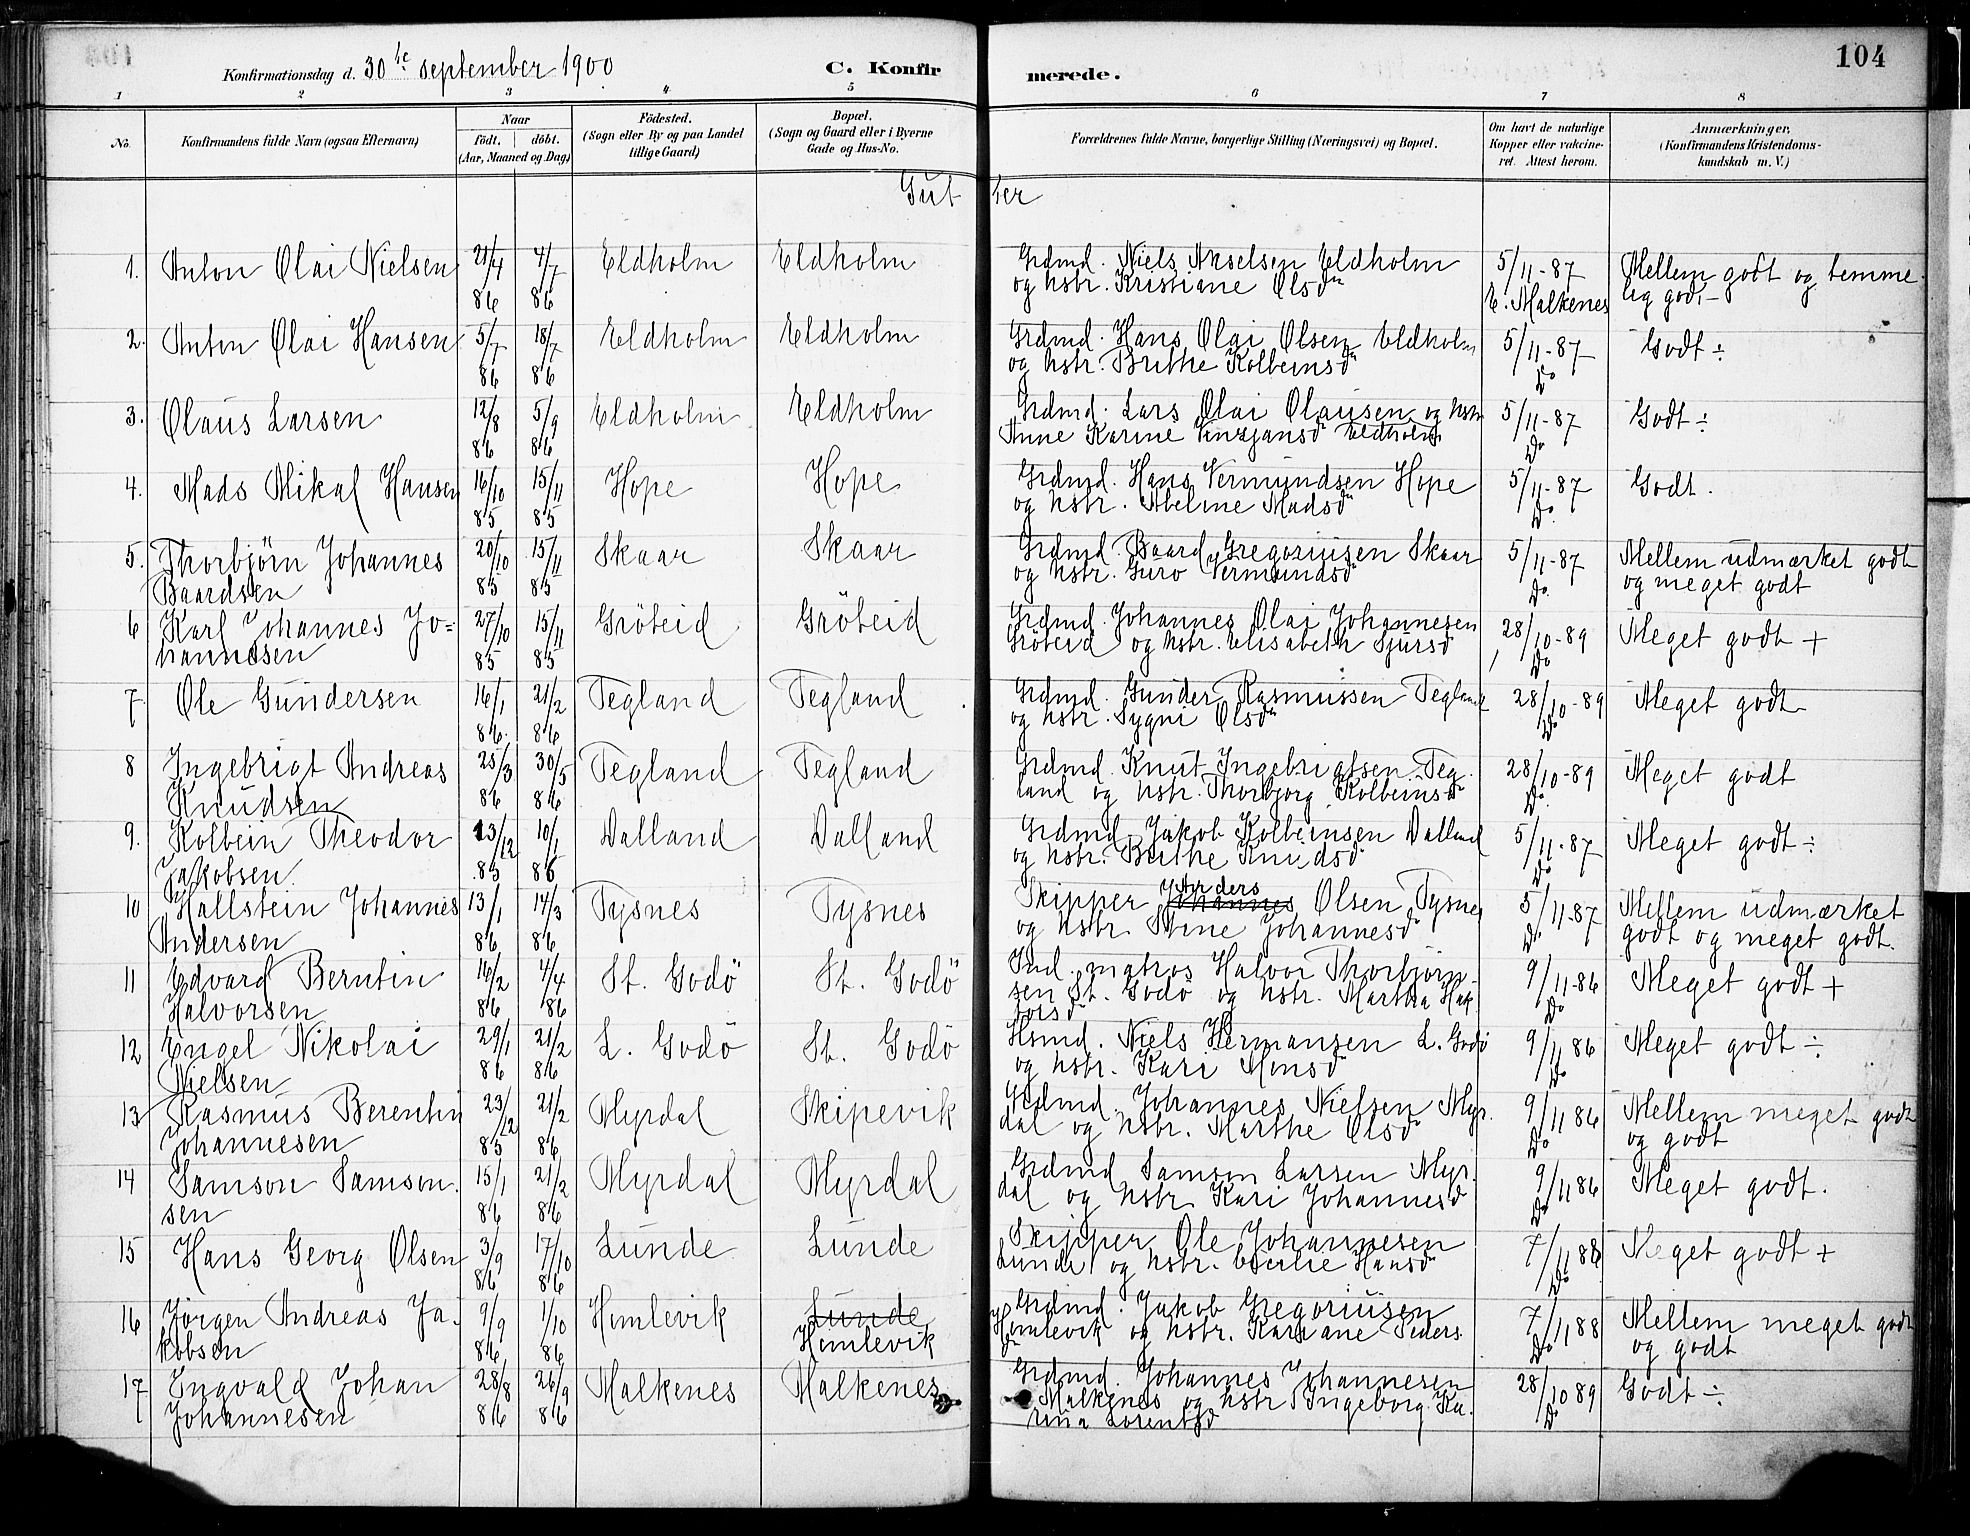 104
Konfirmationsdag d. 30te september 1900 C. Konfirmerede.
1 2 3 4 5 6 7 8
No. Konfirmandens fulde Navn (ogsaa Efternavn) Naar født. døbt. (Aar, Maaned og Dag) Fødested. (Sogn eller By og paa Landet tillige Gaard) Bopæl. (Sogn og Gaard eller i Byerne Gade og Hus-No. Forældrenes fulde Navne, borgerlige Stilling (Næringsvei) og Bopæl. Om havt de naturlige Kopper eller vakcineret. Attest herom. Anmærkninger, (Konfirmandens Kristendomskundskab m. V.)
Gutter
1. Anton Olai Nielsen 21/4 86 4/7 86 Eldholm Eldholm Grdmd. Niels Akselsen Eldholm og hstr. Kristiane Olsdr 5/11-87 E. Malkenes Mellem godt og temmelig godt -
2. Anton Olai Hansen 5/7 86 18/7 86 Eldholm Eldholm Grdmd. Hans Olai Olsen Eldholm og hstr. Brithe Kolbeinsdr 5/11-87 Do Godt ÷
3. Olaus Larsen 12/8 86 5/9 86 Eldholm Eldholm Grdmd. Lars Olai Olausen og hstr Anne Karine Eldholm 5/11-87 Do Godt ÷
4. Mads Mikal Hansen 16/10 85 15/11 85 Hope Hope Grdmd. Hans Vermundsen Hope og hstr. Abeline Madsdr 5/11-87 Do. Godt.
5. Thorbjörn Johannes Baardsen 20/10 85 15/11 85 Skaar Skaar Grdmd. Baard Gregoriusen Skaar og hstr. Guro Vermundsdr 5/11-87 Do. Mellem udmærket godt og meget godt
6 Karl Johannes Johannesen 27/10 85 15/11 85 Gröteid Gröteid Grdmd. Johannes Olai Johannesen Gröteid og hstr. Elisabeth Sjursdr 28/10-89 Do Meget godt +
7 Ole Gundersen 16/1 86. 21/2 86 Tegland Tegland Grdmd. Gunder Rasmussen Tegland og hstr. Sygni Olsdr 28/10-89 Do Meget godt
8 Ingebrigt Andreas Knudsen 25/3 86 30/5 86 Tegland Tegland Grdmd. Knut Ingebrigtsen Tegland og hstr. Thorbjörg Kolbeinsdr 28/10-89 Do. Meget godt
9. Kolbein Theodor Jakobsen 13/12 85 10/1 86 Dalland Dalland Grdmd. Jakob Kolbeinsen Dalland og hstr. Brithe Knudsdr 5/11-87 Do Meget godt ÷
10 Hallstein Johannes Andersen 13/1 86 14/3 86 Tysnes Tysnes Skipper Johannes Anders Olsen Tysnes og hstr. Stine Johannesdr 5/11-87 Do. Mellem udmærket godt og meget godt.
11 Edvard Berntin Halvorsen 16/2 86 4/4 86 St. Godö St. Godö Ind. matros Halvor Thorbjörnsen St. Godö og hstr. Martha 9/11-86 Do Meget godt +
12 Engel Nikolai Nielsen 29/1 86 21/2 86 L. Godö St. Godö Hsmd. Niels Hermansen L. Godö og hstr. Kari Monsdr 9/11 86 Do Meget godt ÷
13 Rasmus Berentin Johannesen 23/12 85 21/2 86 Myrdal Skipevik Grdmd. Johannes Nielsen Myrdal og hstr. Marthe Olsdr 9/11 86 Do Mellem meget godt og godt
14 Samson Samsonsen 15/1 86 21/2 86 Myrdal Myrdal Grdmd Samson Larsen Myrdal og hstr Kari Johannesdr 9/11 86 Do Meget godt.
15 Hans Georg Olsen 3/9 86 17/10 86 Lunde Lunde Skipper Ole Johannesen Lunde og hstr. Cecilie Hansdr 7/11 88 Do Meget godt +
16 Jörgen Andreas Jakobsen 9/9 86 1/10 86 Humlevik Lunde Humlevik Grdmd. Jakob Gregoriusen Humlevik og hstr. Kariane Pedersdr 7/11 88 Do Mellem meget godt og godt
17 Ingvald Johan Johannesen 28/8 86 26/9 86 Malkenes Malkenes Grdmd. Johannes Johannesen Malkenes og hstr Ingeborg Karina Lorentsdr 28/10 89 Do Godt ÷